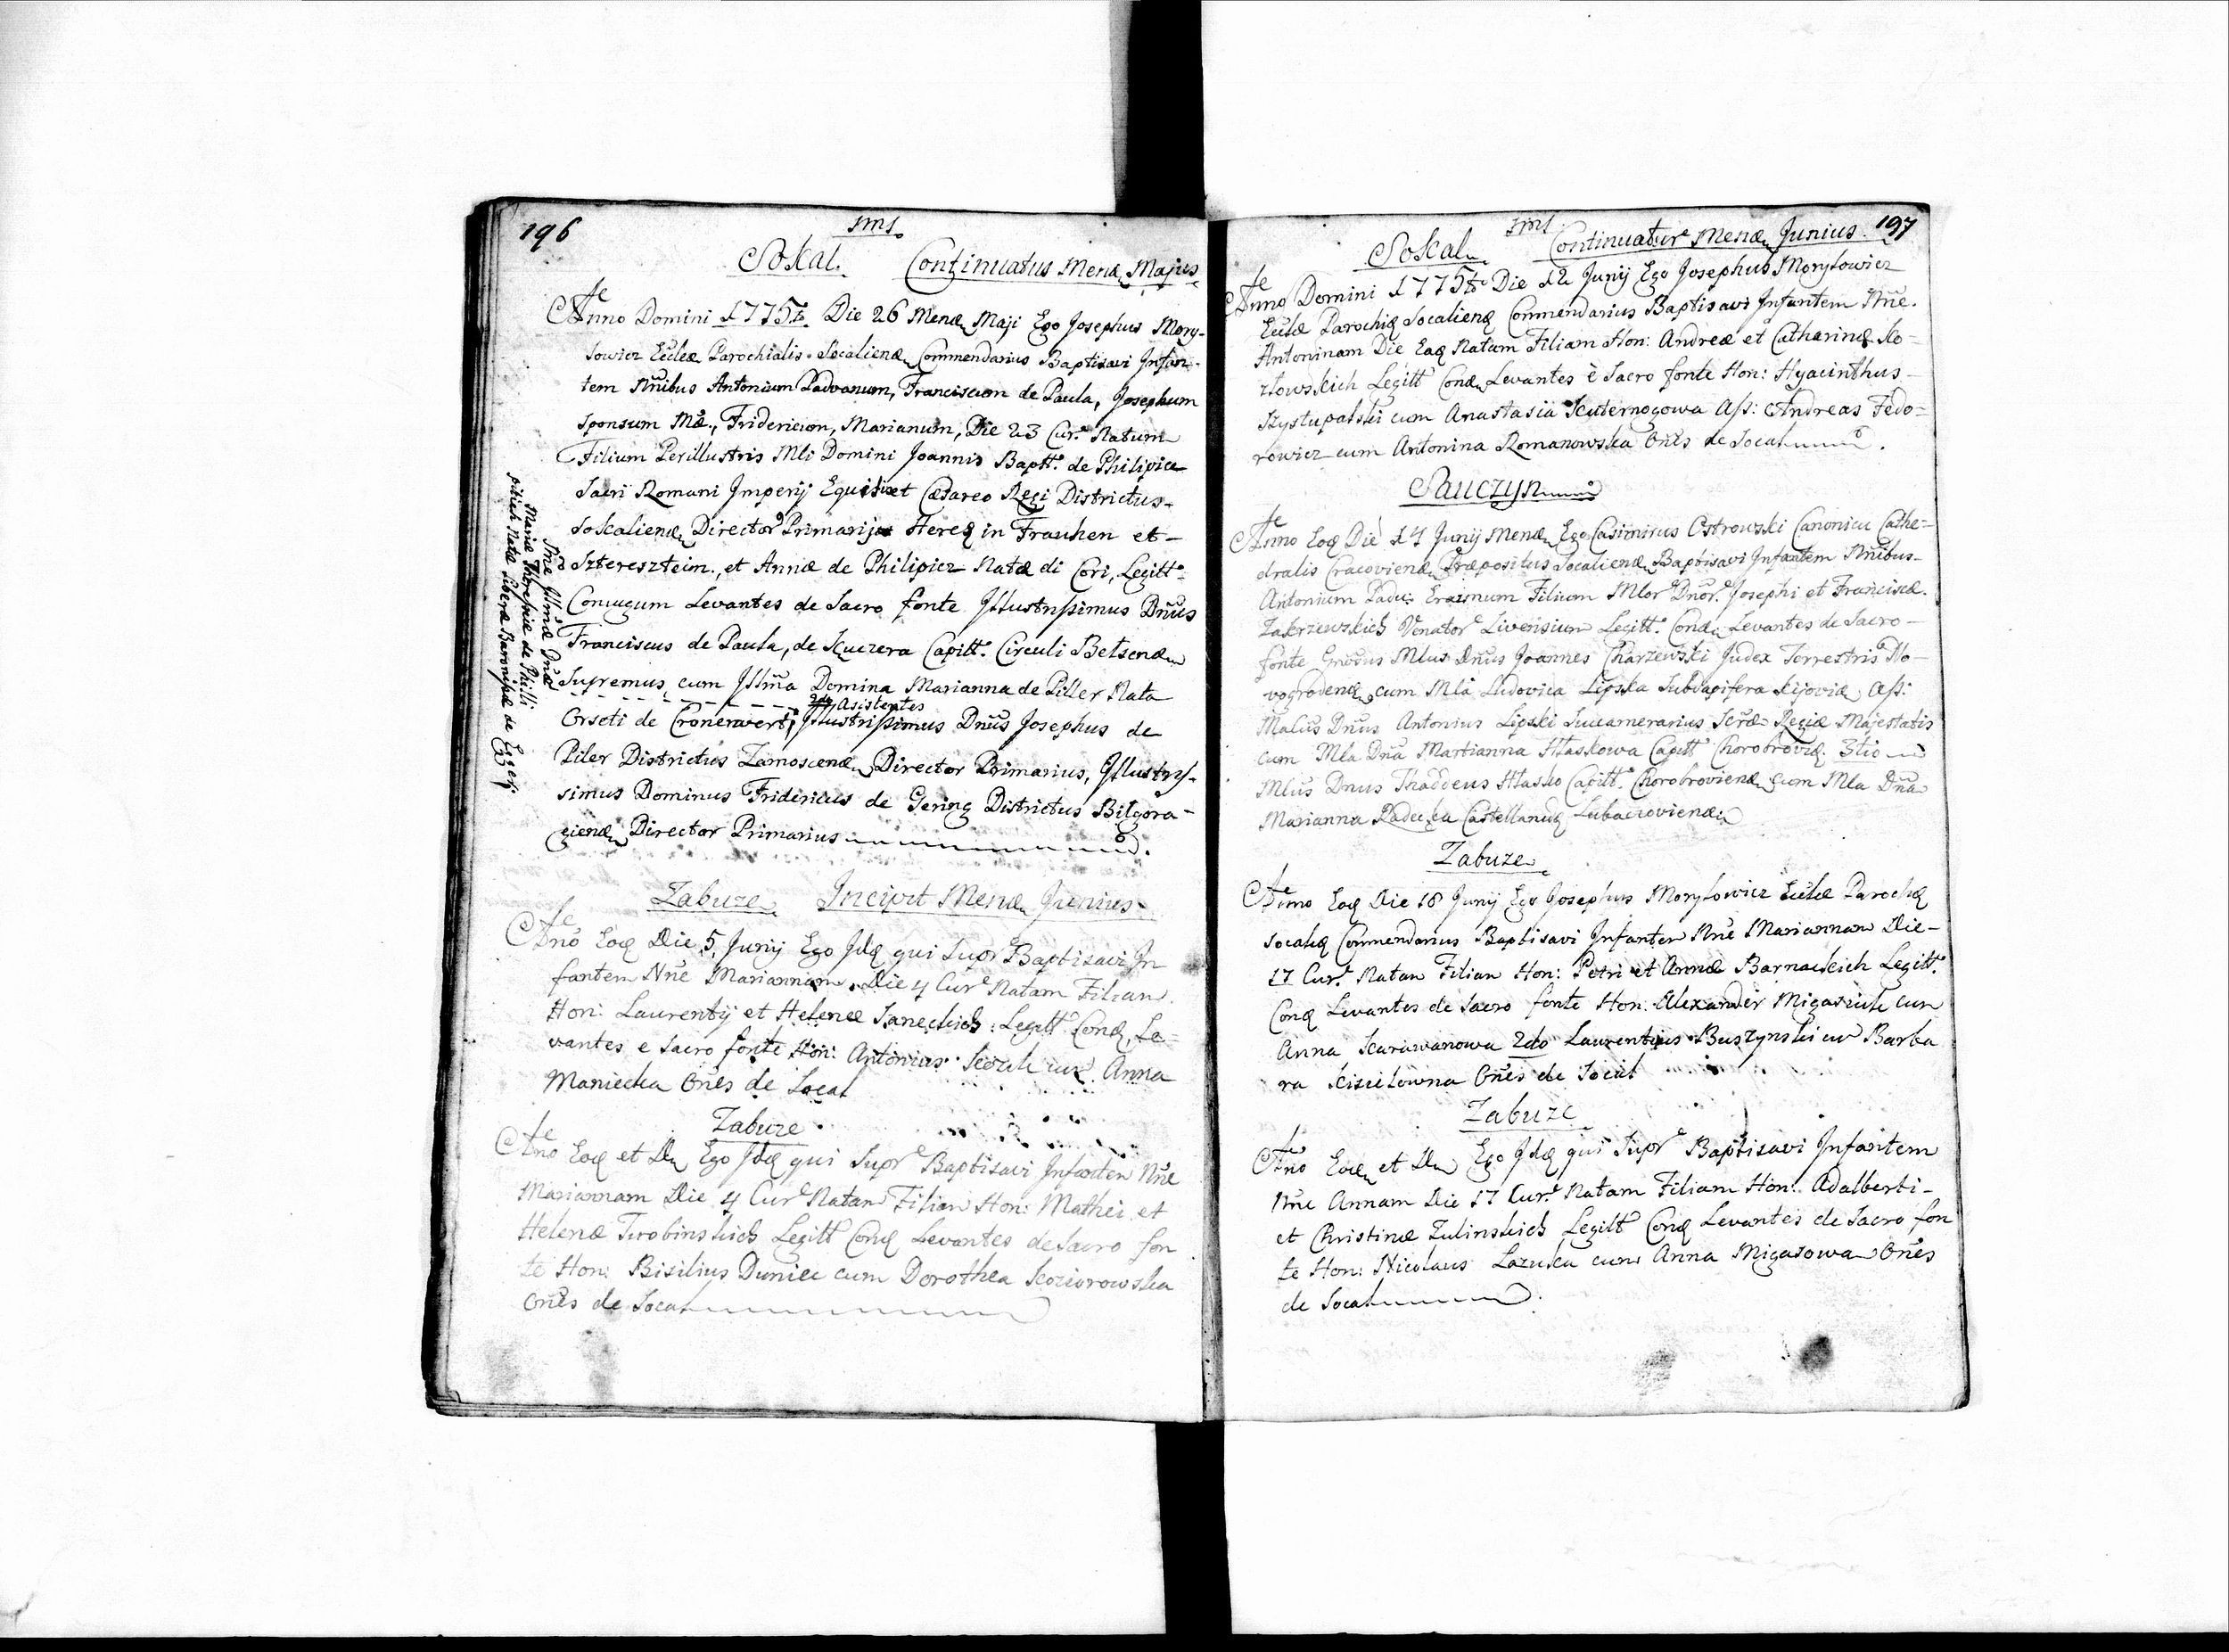 196
Sokal. Continuatus Mensæ Majus
Anno Domini 1775to. Die 26 Mensæ Maji Ego Josephus Mory-
towicz Eccleæ Parochialis Socaliensæ Commendarius Baptisavi Infan-
tem Nnibus Antonium Padvanum, Franciscum de Paula, Josephum
Sponsum Mæ., Fridericum, Marianum, Die 23 Cur. Natum
Filium Perillustris Mli Domini Joannis Baptt. de Philipice
Sacri Romani Imperij Equitis et Cæsareo Regi Districtus
Sokaliensæ Director Primarij Hereq in Frauhen et
Sztereszteim., et Annæ de Philipicz Natæ di Cori, Legitt.
Conjugum Levantes de Sacro fonte Illustrissimus Dnus
Franciscus de Paula, de Kuczera Capitt. Circuli Belsensæ
Supremus, cum Illma Domina Marianna de Piller Nata
2do Asistentes
Orseti de Cronenwert, Illustrissimus Dnus Josephus de
Piler Districtus Zamoscenæ Director Primarius, Illustris-
simus Dominus Fridericus de Gering Districtus Bilgora-
gienæ Director Primarius
cum Illmæ Dnæ
Mariæ Theresiæ de Philli
pitsch Natæ Liberæ Baronissæ de Eggers
Zabuze Incipit Mensæ Junius
Ano Eoq Die 5 Junij Ego Idq qui Supr Baptisavi In
fantem Nne Mariannam, Die 4 Cur Natam Filiam
Hon: Laurentij et Helenæ Janeckich Legitt Conq, Le=
vantes e Sacro fonte Hon: Antonius cum Anna
Maniecka Ones de Socal
Zabuze
Ano Eoq et De Ego Idq qui Supr Baptisavi Infantem Nne
Mariannam Die 4 Cur Natam Filiam Hon: Mathei et
Helenæ Twobinskich Legitt Conq Levantes de Sacro fon
te Hon: Bisilius Duniec cum Dorothea Koziorowska
Ones de Socal
197
Sokal Continuatur Mensæ Junius
Anno Domini 1775to Die 12 Junij Ego Josephus Morytowicz
Eccleæ Parochiq Socalienq Commendarius Baptisavi Infantem Nne.
Antoninam Die Eaq Natam Filiam Hon: Andreæ et Catharinæ Ko=
złowskich Legitt Conæ Levantes è Sacro fonte Hon: Hyacinthus
Szystupalski cum Anastasia Kuternogowa Ass: Andreas Fedo=
rowicz cum Antonina Romanowska Ones de Socal
Sauczyn
Anno Eoq Die 14 Junij Mensæ Ego Casimirus Ostrowski Canonicu Cathe=
dralis Cracoviensæ Præpositus Socalienæ Baptisavi Infantem Nnibus
Antonium Padu: Erasmum Filium Mlor Dnor. Josephi et Franciscæ.
Zakrzewskich Venator Livensium Legitt. Conæ Levantes de Sacro
fonte Gnosus Mlus Dnus Joannes Charzewski Judex Terrestris No-
vogrodenæ, cum Mla Ludovica Lipska Subdapifera Kijoviæ, Ass:
Malus Dnus Antonius Lipski Succamerarius Scræ Regiæ Majestatis
cum Mla Dna Martianna Hłaskowa Capitt Chorobroviq 3tio
Mlus Dnus Thaddeus Hłasko Capitt. Chorobrovienæ cum Mla Dna
Marianna Radecka Castellaniq Lubacovienæ
Zabuze
Anno Eoq Die 18 Junij Ego Josephus Morytowicz Eccleæ Parochiq
Socaliq Commendarius Baptisavi Infantem Nne Mariannam Die
17 Cur. Natam Filiam Hon: Petri et Annæ Barnackich Legitt.
Conq Levantes de Sacro fonte Hon: Alexander Migasiuk cum
Anna Karawanowa 2do Laurentius Buszynski cum Barba
ra Kisielowna Ones de Socal
Zabuze
Ano Eoq et De Ego Idq qui Supr Baptisavi Infantem
Nne Annam Die 17 Cur. Natam Filiam Hon: Adalberti
et Christinæ Zulinskich Legitt Conq Levantes de Sacro fon
te Hon: Nicolaus Lazuka cum Anna Migasowa Ones
de Socal